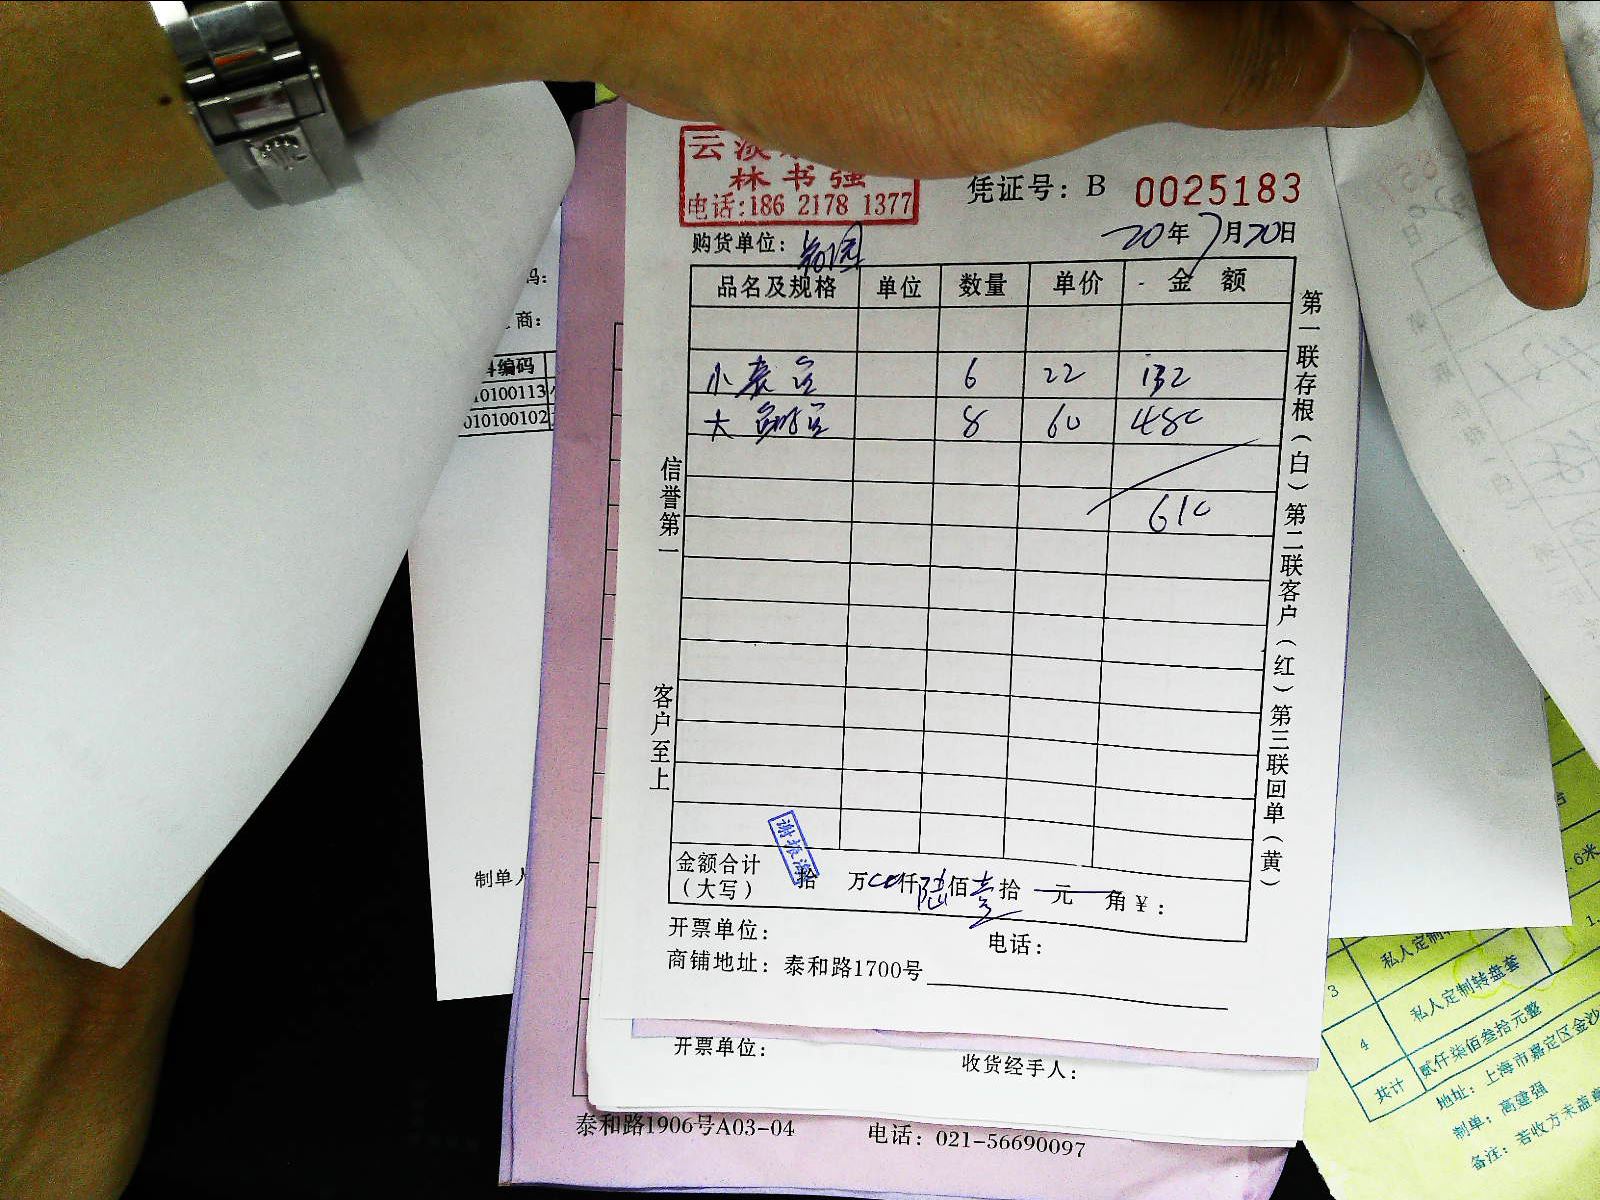 云淡
林书强
电话:186 2178 1377
凭证号：B 0025183
20年7月20日
购货单位：
品名及规格 单位 数量 单价 金额
小 6 22 132
大 8 60 480
610
信誉第一
客户至上
第一联存根（白）第二联客户（红）第三联回单（黄）
金额合计（大写） 拾 万 仟陆佰壹拾 元 角￥：
开票单位： 电话：
商铺地址：泰和路1700号
开票单位： 收货经手人：
泰和路1906号A03-04 电话：021-56690097
码：
商：
编码
10100113
010100102
制单人
3 私人定制
4 私人定制转盘套
共计 贰仟柒佰叁拾元整
地址：上海市嘉定区金沙
制单：高建强
备注：若收方未盖章
6米
1.